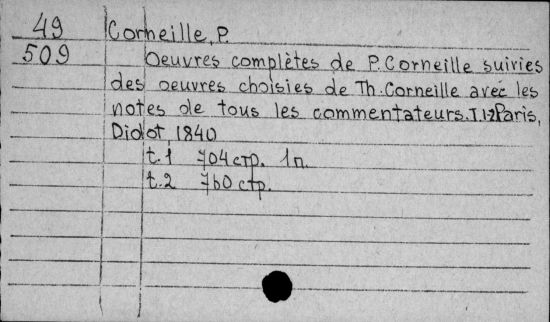 49 Corneille, P.
509 Oeuvres complètes de P. Corneille suivies
des oeuvres choisies de Th. Corneille avec les
notes de tous les commentateurs. T.1-2 Paris,
Didot 1840
t.1 704 стр. 1 п.
t.2 760 стр.